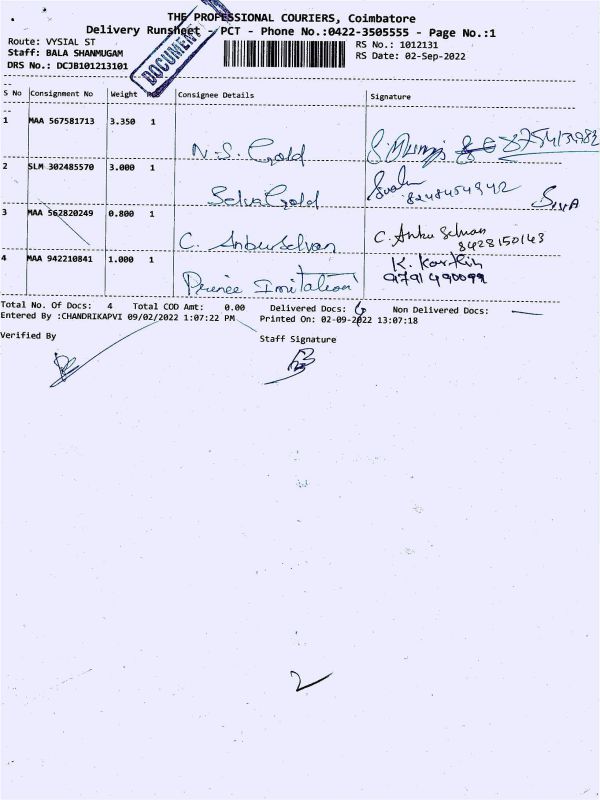 THE PROFESSIONAL COURIERS, Coimbatore
Delivery Runsheet - PCT - Phone No.:0422-3505555 - Page No.:1
Route: VYSIAL ST
RS No.: 1012131
Staff: BALA SHANMUGAM
RS Date: 02-Sep-2022
DRS No.: DCJB101213101
DOCUMENT
S No Consignment No Weight Consignee Details Signature
1 MAA 567581713 3.350 1 N.S. Gold
2 SLM 302485570 3.000 1 Selva Gold 8248454942 SIVA
3 MAA 562820249 0.800 1 C. Anbuselvan C. Anbu Selvan 8428150143
4 MAA 942210841 1.000 1 Prince Imitation K. Karthik 9791490099
Total No. Of Docs: 4 Total COD Amt: 0.00 Delivered Docs: Non Delivered Docs:
Entered By :CHANDRIKAPVI 09/02/2022 1:07:22 PM Printed On: 02-09-2022 13:07:18
Verified By Staff Signature
2